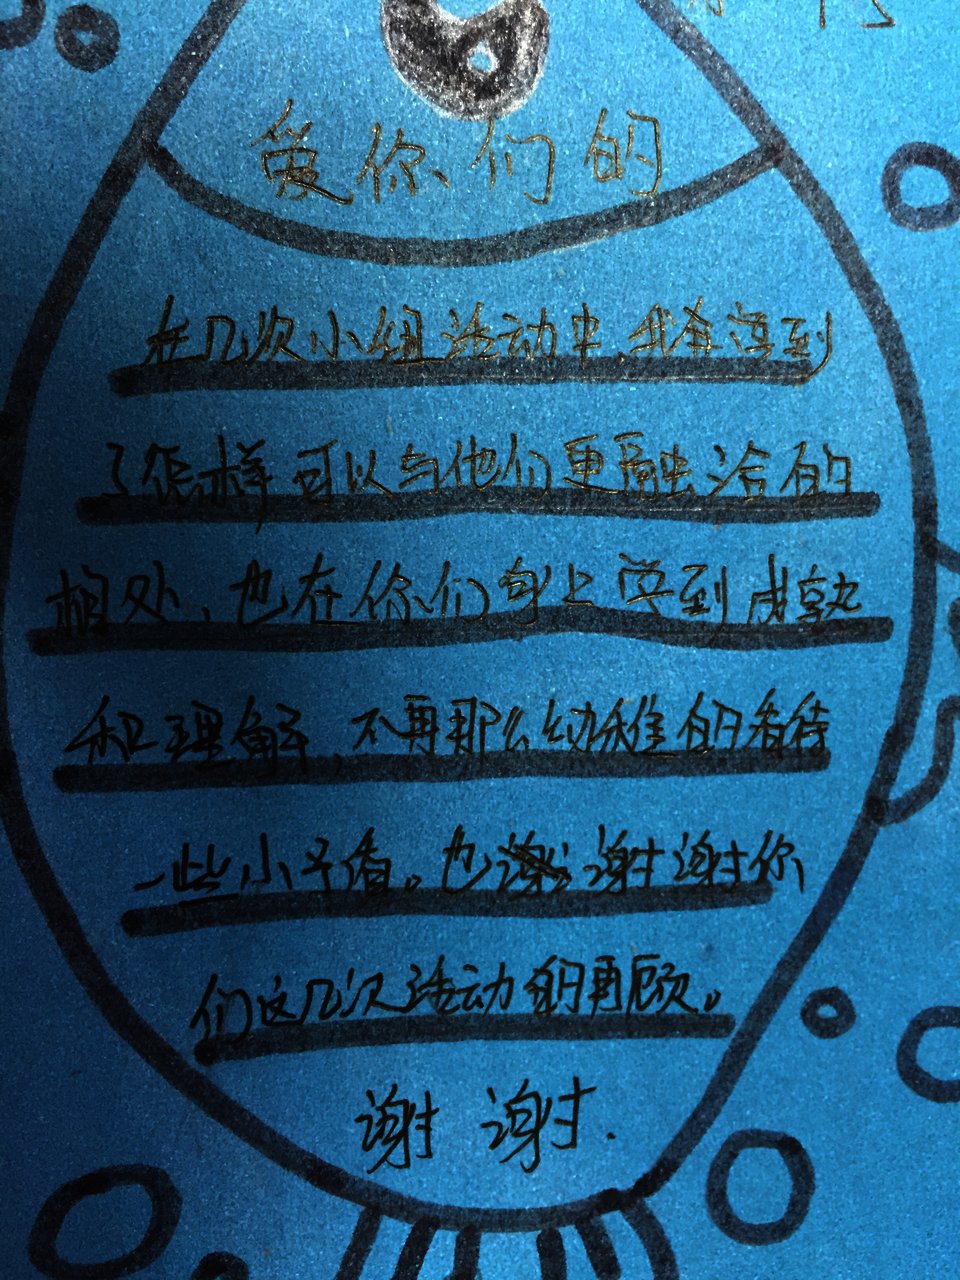 爱你们的
在几次小组活动中,我学到
了怎样可以与他们更融洽的
相处,也在你们身上学到成熟
和理解,不再那么幼稚的看待
一些小矛盾。也谢谢你
们这几次活动的顾。
谢谢.